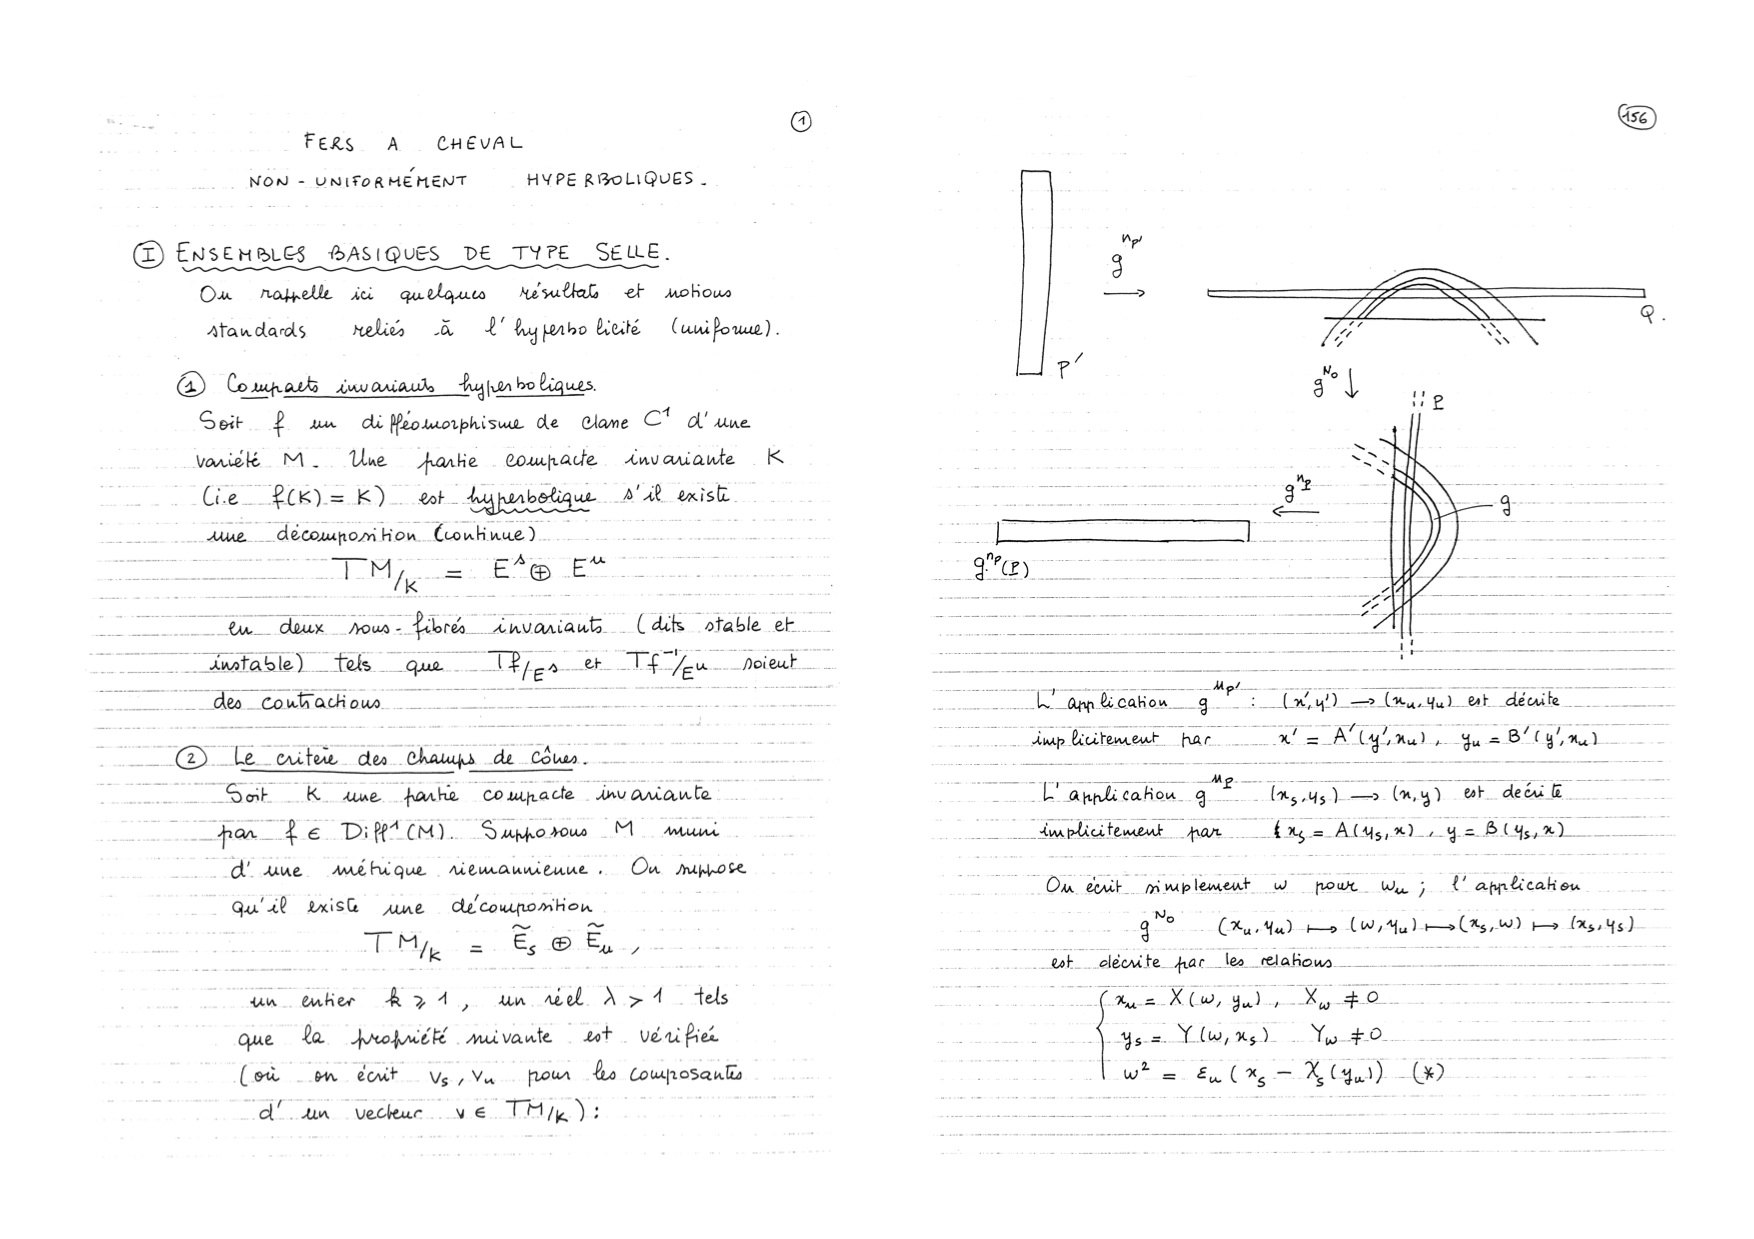 ①
FERS A CHEVAL
NON-UNIFORMÉMENT HYPERBOLIQUES.
Ⓘ ENSEMBLES BASIQUES DE TYPE SELLE.
On rappelle ici quelques résultats et notions
standards reliés à l'hyperbolicité (uniforme).
① Compacts invariants hyperboliques.
Soit f un difféomorphisme de classe C¹ d'une
variété M. Une partie compacte invariante K
(i.e f(K) = K) est hyperbolique s'il existe
une décomposition (continue)
TM/K = Eˢ ⊕ Eᵘ
en deux sous-fibrés invariants (dits stable et
instable) tels que Tf/Eˢ et Tf⁻¹/Eᵘ soient
des contractions
② Le critère des champs de cônes.
Soit K une partie compacte invariante
par f ∈ Diff¹(M). Supposons M muni
d'une métrique riemannienne. On suppose
qu'il existe une décomposition
TM/K = Ẽₛ ⊕ Ẽᵤ,
un entier k ⩾ 1, un réel λ > 1 tels
que la propriété suivante est vérifiée
(où on écrit vₛ, vᵤ pour les composantes
d'un vecteur v ∈ TM/K) :
156
P'
g^{n_{P'}}
Q.
g^{N₀}
P
g
g^{n_P}
g^{n_P}(P)
L'application g^{n_{P'}} : (x',y') → (xᵤ,yᵤ) est décrite
implicitement par x' = A'(y',xᵤ), yᵤ = B'(y',xᵤ)
L'application g^{n_P} (xₛ,yₛ) → (x,y) est décrite
implicitement par xₛ = A(yₛ,x), y = B(yₛ,x)
On écrit simplement w pour wᵤ ; l'application
g^{N₀} (xᵤ,yᵤ) ↦ (w,yᵤ) ↦ (xₛ,w) ↦ (xₛ,yₛ)
est décrite par les relations
xᵤ = X(w,yᵤ), X_w ≠ 0
yₛ = Y(w,xₛ) Y_w ≠ 0
w² = εᵤ(xₛ − Xₛ(yᵤ)) (*)